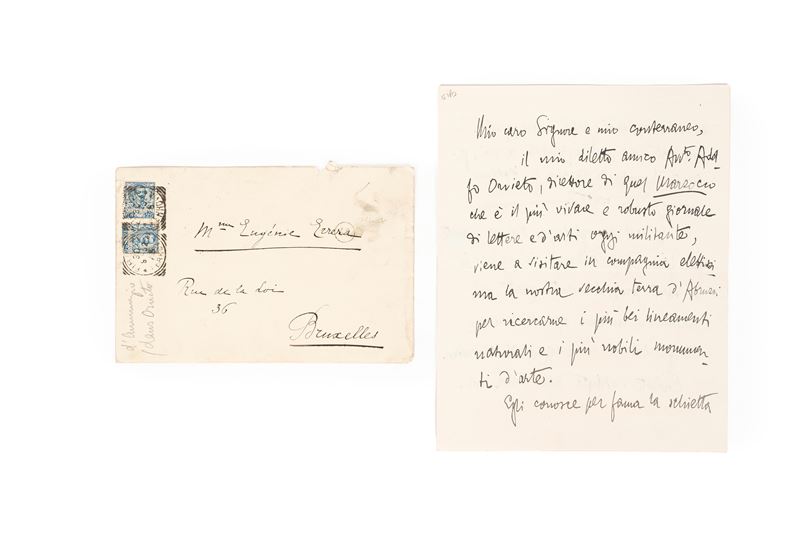 Mme Eugénie Errera
Rue de la Loi
36
Bruxelles
d'Annunzio
Mio caro Signore e mio conterraneo,
il mio diletto amico
Orvieto, direttore di quel Marzocco
che è il più vivace e robusto giornale
di lettere e d'arti oggi militante,
viene a visitare in compagnia elettissi
ma la nostra vecchia terra d'Abruzzi
per ricercarne i più bei lineamenti
naturali e i più nobili monumen-
ti d'arte.
Egli conosce per fama la schietta